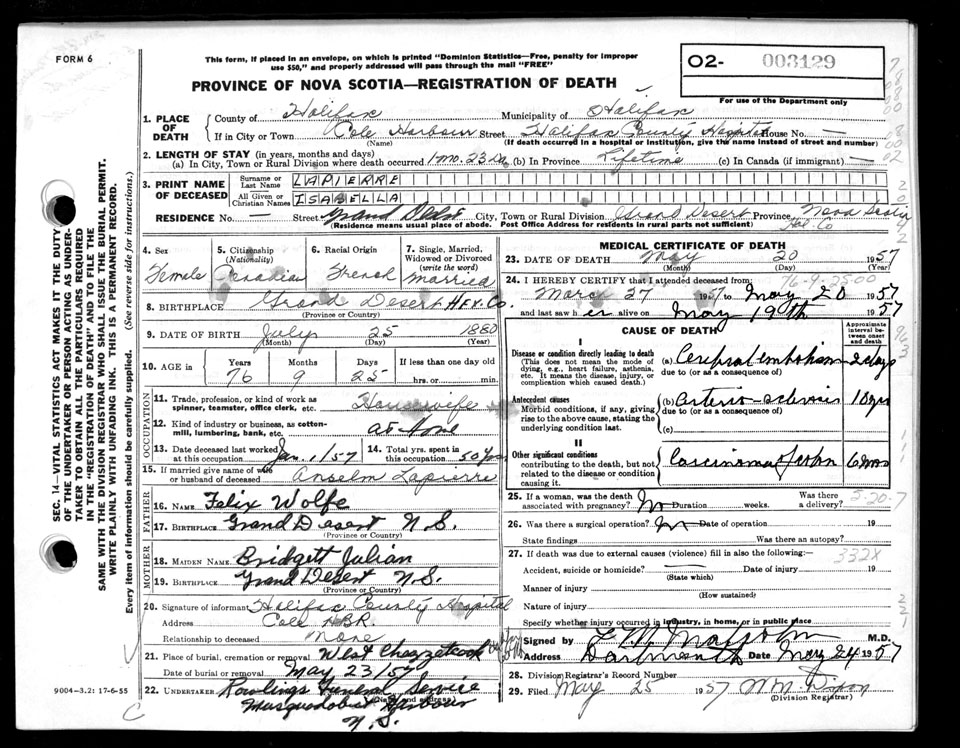 FORM 6
This form, if placed in an envelope, on which is printed "Dominion Statistics—Free, penalty for improper
use $50," and properly addressed will pass through the mail "FREE"
PROVINCE OF NOVA SCOTIA—REGISTRATION OF DEATH
O2- 003129
For use of the Department only
1. PLACE OF DEATH
County of Halifax Municipality of Halifax
If in City or Town Cole Harbour Street Halifax County Hospital House No. —
(Name) (If death occurred in a hospital or institution, give the name instead of street and number)
2. LENGTH OF STAY (in years, months and days)
(a) In City, Town or Rural Division where death occurred 1 mo. 23 Da (b) In Province Lifetime (c) In Canada (if immigrant) —
3. PRINT NAME OF DECEASED
Surname or Last Name LAPIERRE
All Given or Christian Names ISABELLA
RESIDENCE No. — Street Grand Desert City, Town or Rural Division Grand Desert Province Nova Scotia
(Residence means usual place of abode. Post Office Address for residents in rural parts not sufficient) Hal. Co
4. Sex Female
5. Citizenship (Nationality) Canadian
6. Racial Origin French
7. Single, Married, Widowed or Divorced (write the word) Married
8. BIRTHPLACE Grand Desert HFX. Co.
(Province or Country)
9. DATE OF BIRTH July 25 1880
(Month) (Day) (Year)
10. AGE in Years Months Days If less than one day old
76 9 25 hrs. or min.
OCCUPATION
11. Trade, profession, or kind of work as
spinner, teamster, office clerk, etc. Housewife
12. Kind of industry or business, as cotton-
mill, lumbering, bank, etc. at Home
13. Date deceased last worked at this occupation Jan. 1/57
14. Total yrs. spent in this occupation 50 Yrs
15. If married give name of wife
or husband of deceased Anselm Lapierre
FATHER
16. NAME Felix Wolfe
17. BIRTHPLACE Grand Desert N.S.
(Province or Country)
MOTHER
18. MAIDEN NAME Bridgett Julian
19. BIRTHPLACE Grand Desert N.S.
(Province or Country)
20. Signature of informant Halifax County Hospital
Address Cole HBR.
Relationship to deceased None
21. Place of burial, cremation or removal West Chezzetcook
Date of burial or removal May 23/57
22. UNDERTAKER Rowlings Funeral Service
(Name and address)
Musquodoboit Harbour
N.S.
MEDICAL CERTIFICATE OF DEATH
23. DATE OF DEATH May 20 1957
(Month) (Day) (Year)
24. I HEREBY CERTIFY that I attended deceased from:
76-9-25-00
March 27 1957 to May 20 1957
and last saw her alive on May 19th 1957
CAUSE OF DEATH
Approximate interval between onset and death
I
Disease or condition directly leading to death
(This does not mean the mode of dying, e.g., heart failure, asthenia, etc. It means the disease, injury, or complication which caused death.)
(a) Cerebral embolism 2 days
due to (or as a consequence of)
Antecedent causes
Morbid conditions, if any, giving rise to the above cause, stating the underlying condition last.
(b) Arterio-sclerosis 10 yrs
due to (or as a consequence of)
(c)
II
Other significant conditions
contributing to the death, but not related to the disease or condition causing it.
Carcinoma of colon 6 mos
25. If a woman, was the death associated with pregnancy? No Duration weeks. Was there a delivery?
3-20-7
26. Was there a surgical operation? No Date of operation 19
State findings Was there an autopsy?
27. If death was due to external causes (violence) fill in also the following:—
332X
Accident, suicide or homicide? — Date of injury 19
(State which)
Manner of injury
(How sustained)
Nature of injury
Specify whether injury occurred in industry, in home, or in public place
Signed by M.D.
Address Dartmouth Date May 24 1957
28. Division Registrar's Record Number
29. Filed May 25 1957 Wm Dixon
(Division Registrar)
SEC. 14—VITAL STATISTICS ACT MAKES IT THE DUTY
OF THE UNDERTAKER OR PERSON ACTING AS UNDER-
TAKER TO OBTAIN ALL THE PARTICULARS REQUIRED
IN THE "REGISTRATION OF DEATH" AND TO FILE THE
SAME WITH THE DIVISION REGISTRAR WHO SHALL ISSUE THE BURIAL PERMIT.
WRITE PLAINLY WITH UNFADING INK. THIS IS A PERMANENT RECORD.
Every item of information should be carefully supplied. (See reverse side for instructions.)
9004—3.2: 17-6-55